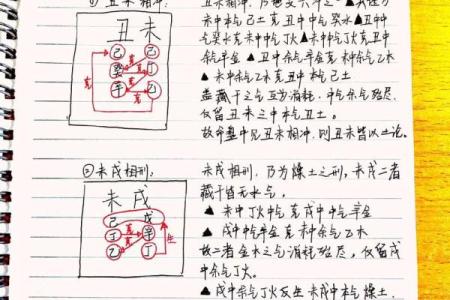 丑未相冲:
丑未
己 己
癸 丁
辛 乙
克
克
克
未中本气己土克丑中中气癸水▲丑中中
气癸水克未中中气丁火▲未中中气丁火克丑中
余气辛金 ▲丑中余气辛金克未中余气乙木
▲未中余气乙木克丑中本气己土
盖藏干之气互为消耗,中气余气殆尽,
仅留丑未之中本气丑土。
故命盘中见丑未相冲,则丑未皆以土论。
②未戌相刑:
未戌
己 戊
丁 辛
乙 丁
克
克
生
未戌相刑,乃为燥土之刑,未戌二者
藏干皆无水气。
▲ 未中丁火中气克戌中中气辛金
▲ 戌中中气辛金克未中余气乙木
故二者金木之气消耗殆尽,仅留戌
中余气丁火。
▲ 戌中余气丁火反生未戌中本气燥土.